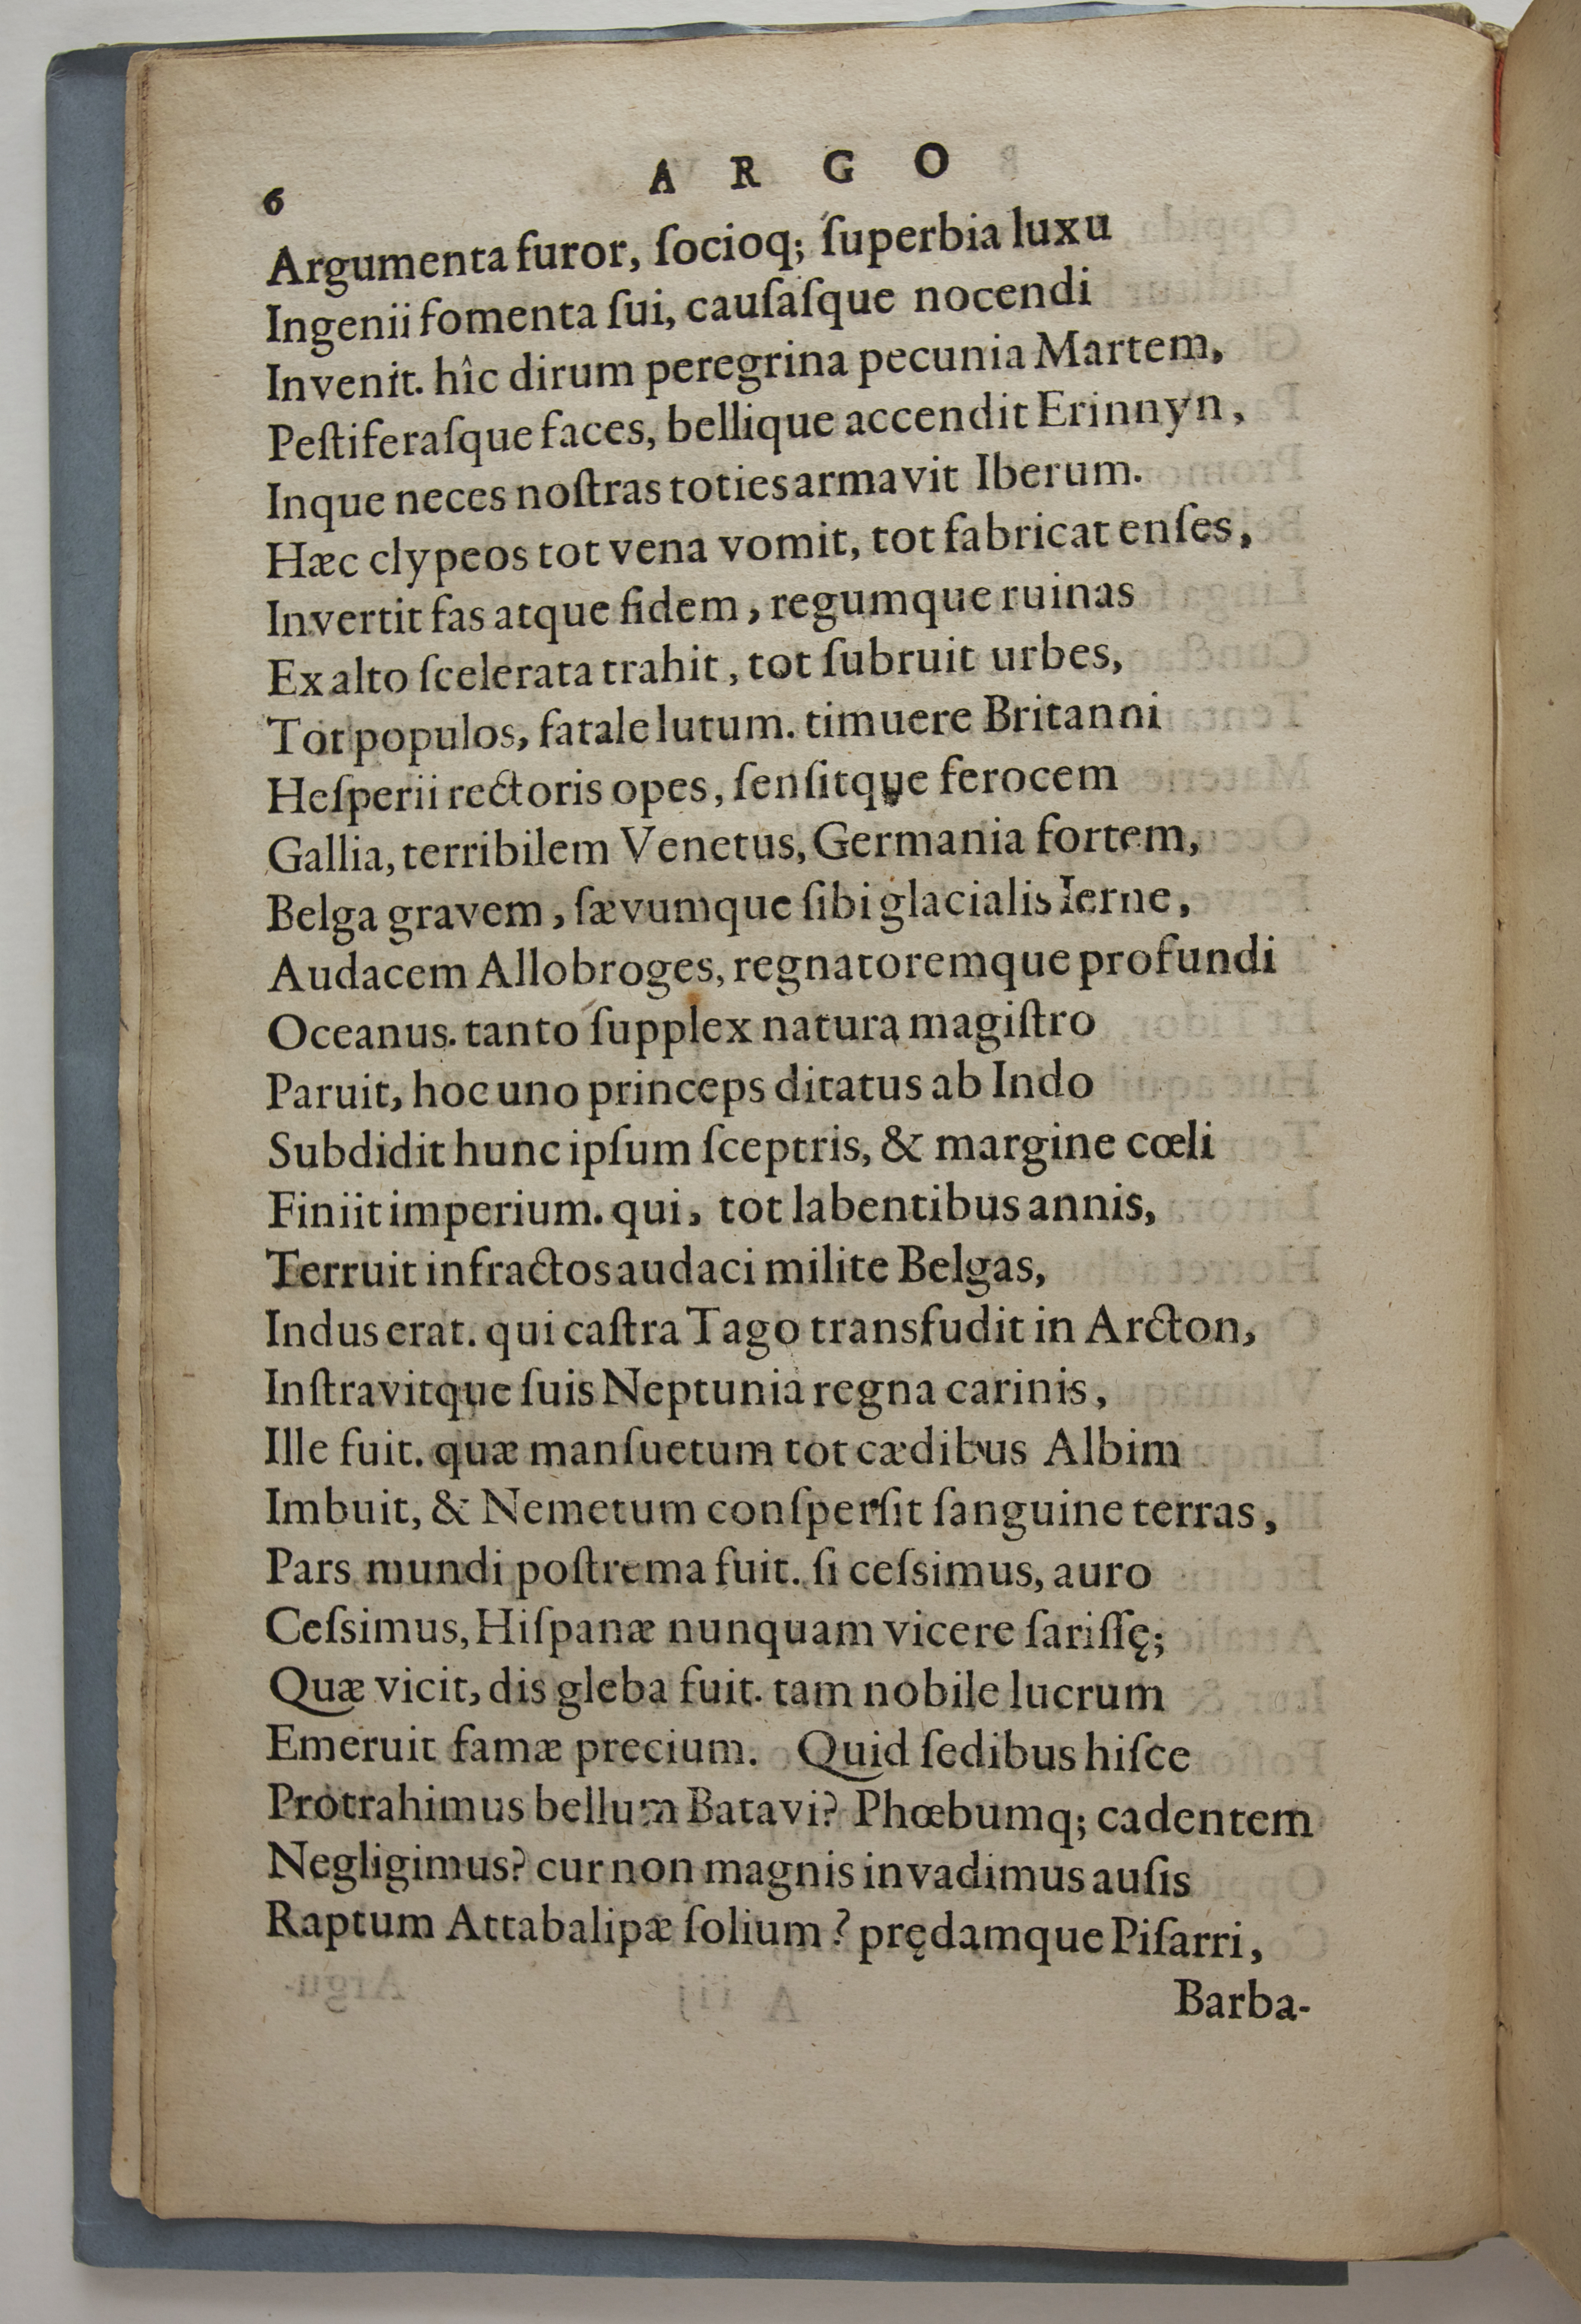 6
A R G O
Argumenta furor, ſocioq; ſuperbia luxu
Ingenii fomenta ſui, cauſaſque nocendi
Invenit. hîc dirum peregrina pecunia Martem,
Peſtiferaſque faces, bellique accendit Erinnyn,
Inque neces noſtras toties armavit Iberum.
Hæc clypeos tot vena vomit, tot fabricat enſes,
Invertit fas atque fidem, regumque ruinas
Ex alto ſcelerata trahit, tot ſubruit urbes,
Tot populos, fatale lutum. timuere Britanni
Heſperii rectoris opes, ſenſitque ferocem
Gallia, terribilem Venetus, Germania fortem,
Belga gravem, ſævumque ſibi glacialis Ierne,
Audacem Allobroges, regnatoremque profundi
Oceanus. tanto ſupplex natura magiſtro
Paruit, hoc uno princeps ditatus ab Indo
Subdidit hunc ipſum ſceptris, & margine cœli
Finiit imperium. qui, tot labentibus annis,
Terruit infractos audaci milite Belgas,
Indus erat. qui caſtra Tago transfudit in Arcton,
Inſtravitque ſuis Neptunia regna carinis,
Ille fuit. quæ manſuetum tot cædibus Albim
Imbuit, & Nemetum conſperſit ſanguine terras,
Pars mundi poſtrema fuit. ſi ceſsimus, auro
Ceſsimus, Hiſpanæ nunquam vicere ſariſſę;
Quæ vicit, dis gleba fuit. tam nobile lucrum
Emeruit famæ precium. Quid ſedibus hiſce
Protrahimus bellum Batavi? Phœbumq; cadentem
Negligimus? cur non magnis invadimus auſis
Raptum Attabalipæ ſolium? prędamque Piſarri,
Barba-